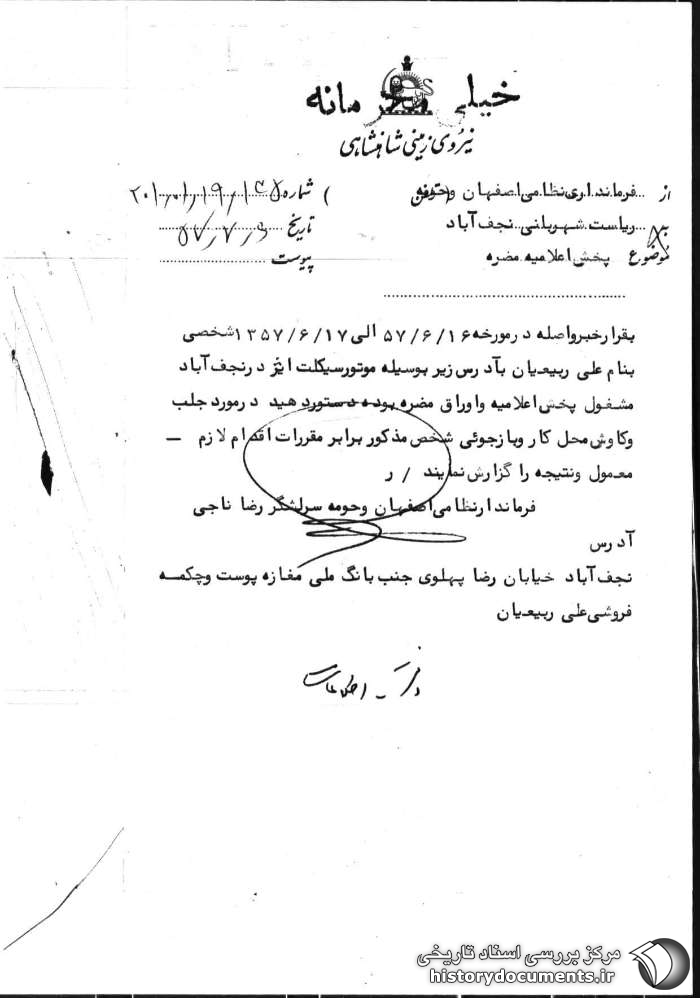 خیلی محرمانه
نیروی زمینی شاهنشاهی
از فرمانداری نظامی اصفهان وحومه ( ) شماره
به ریاست شهربانی نجف آباد تاریخ ۵۷/۷/۶
موضوع پخش اعلامیه مضره پیوست
بقرار خبر واصله در مورخه ۵۷/۶/۱۶ الی ۱۳۵۷/۶/۱۷ شخصی
بنام علی ربیعیان بآدرس زیر بوسیله موتورسیکلت ایژ در نجف آباد
مشغول پخش اعلامیه واوراق مضره بوده دستور دهید در مورد جلب
وکاوش محل کار وبازجوئی شخص مذکور برابر مقررات اقدام لازم ــ
معمول ونتیجه را گزارش نمایند / ر
فرماندار نظامی اصفهان وحومه سرلشگر رضا ناجی
آدرس
نجف آباد خیابان رضا پهلوی جنب بانگ ملی مغازه پوست وچکمه
فروشی علی ربیعیان
اطلاعات
مرکز بررسی اسناد تاریخی
historydocuments.ir